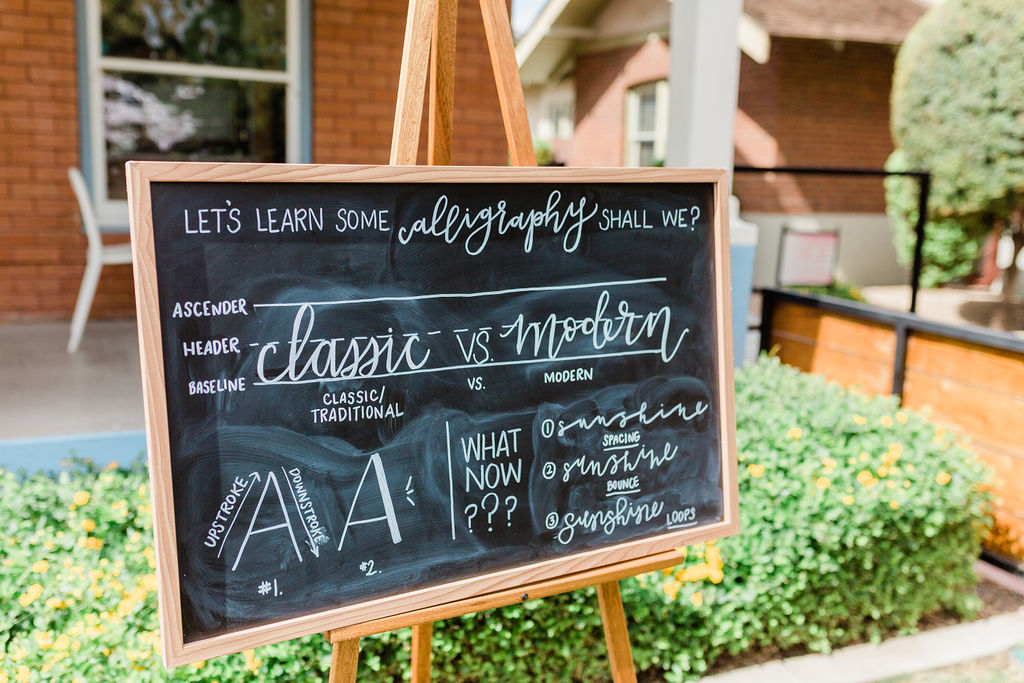 LET'S LEARN SOME calligraphy SHALL WE?
ASCENDER
HEADER
BASELINE
classic VS. modern
CLASSIC/
TRADITIONAL
VS.
MODERN
UPSTROKE
DOWNSTROKE
#1.
#2.
WHAT
NOW
???
1 sunshine
SPACING
2 sunshine
BOUNCE
3 sunshine
LOOPS